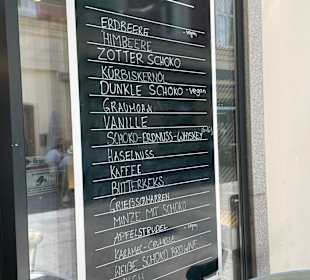 ERDBEERE -vegan
HIMBEERE
ZOTTER SCHOKO
KÜRBISKERNÖL
DUNKLE SCHOKO -vegan
GRAUMOHN
VANILLE
SCHOKO-ERDNUSS-WHISKEY
HASELNUSS
KAFFEE
BUTTERKEKS
GRIESSSCHMARREN
MINZE MIT SCHOKO
APFELSTRUDEL
KARAMEL-CRUNCH
WEIßE SCHOKO BROWNIE